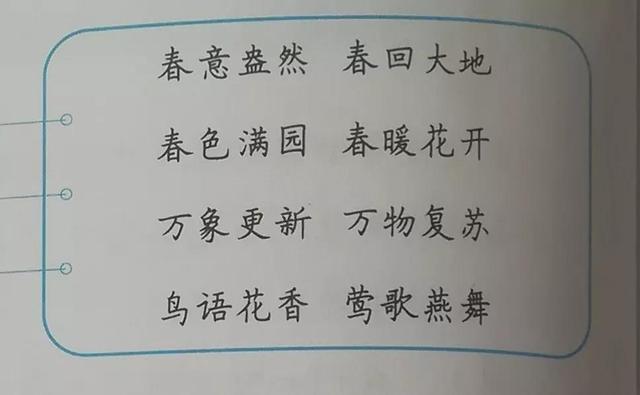 春意盎然 春回大地
春色满园 春暖花开
万象更新 万物复苏
鸟语花香 莺歌燕舞